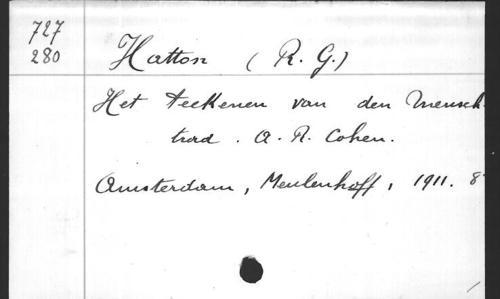 727
280
Hatton (R. G.)
Het teekenen van den mensch.
trad. A. R. Cohen.
Amsterdam, Meulenhoff, 1911. 8°